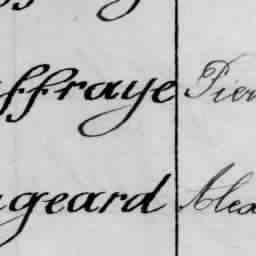 ffraye Pier
geard Alex